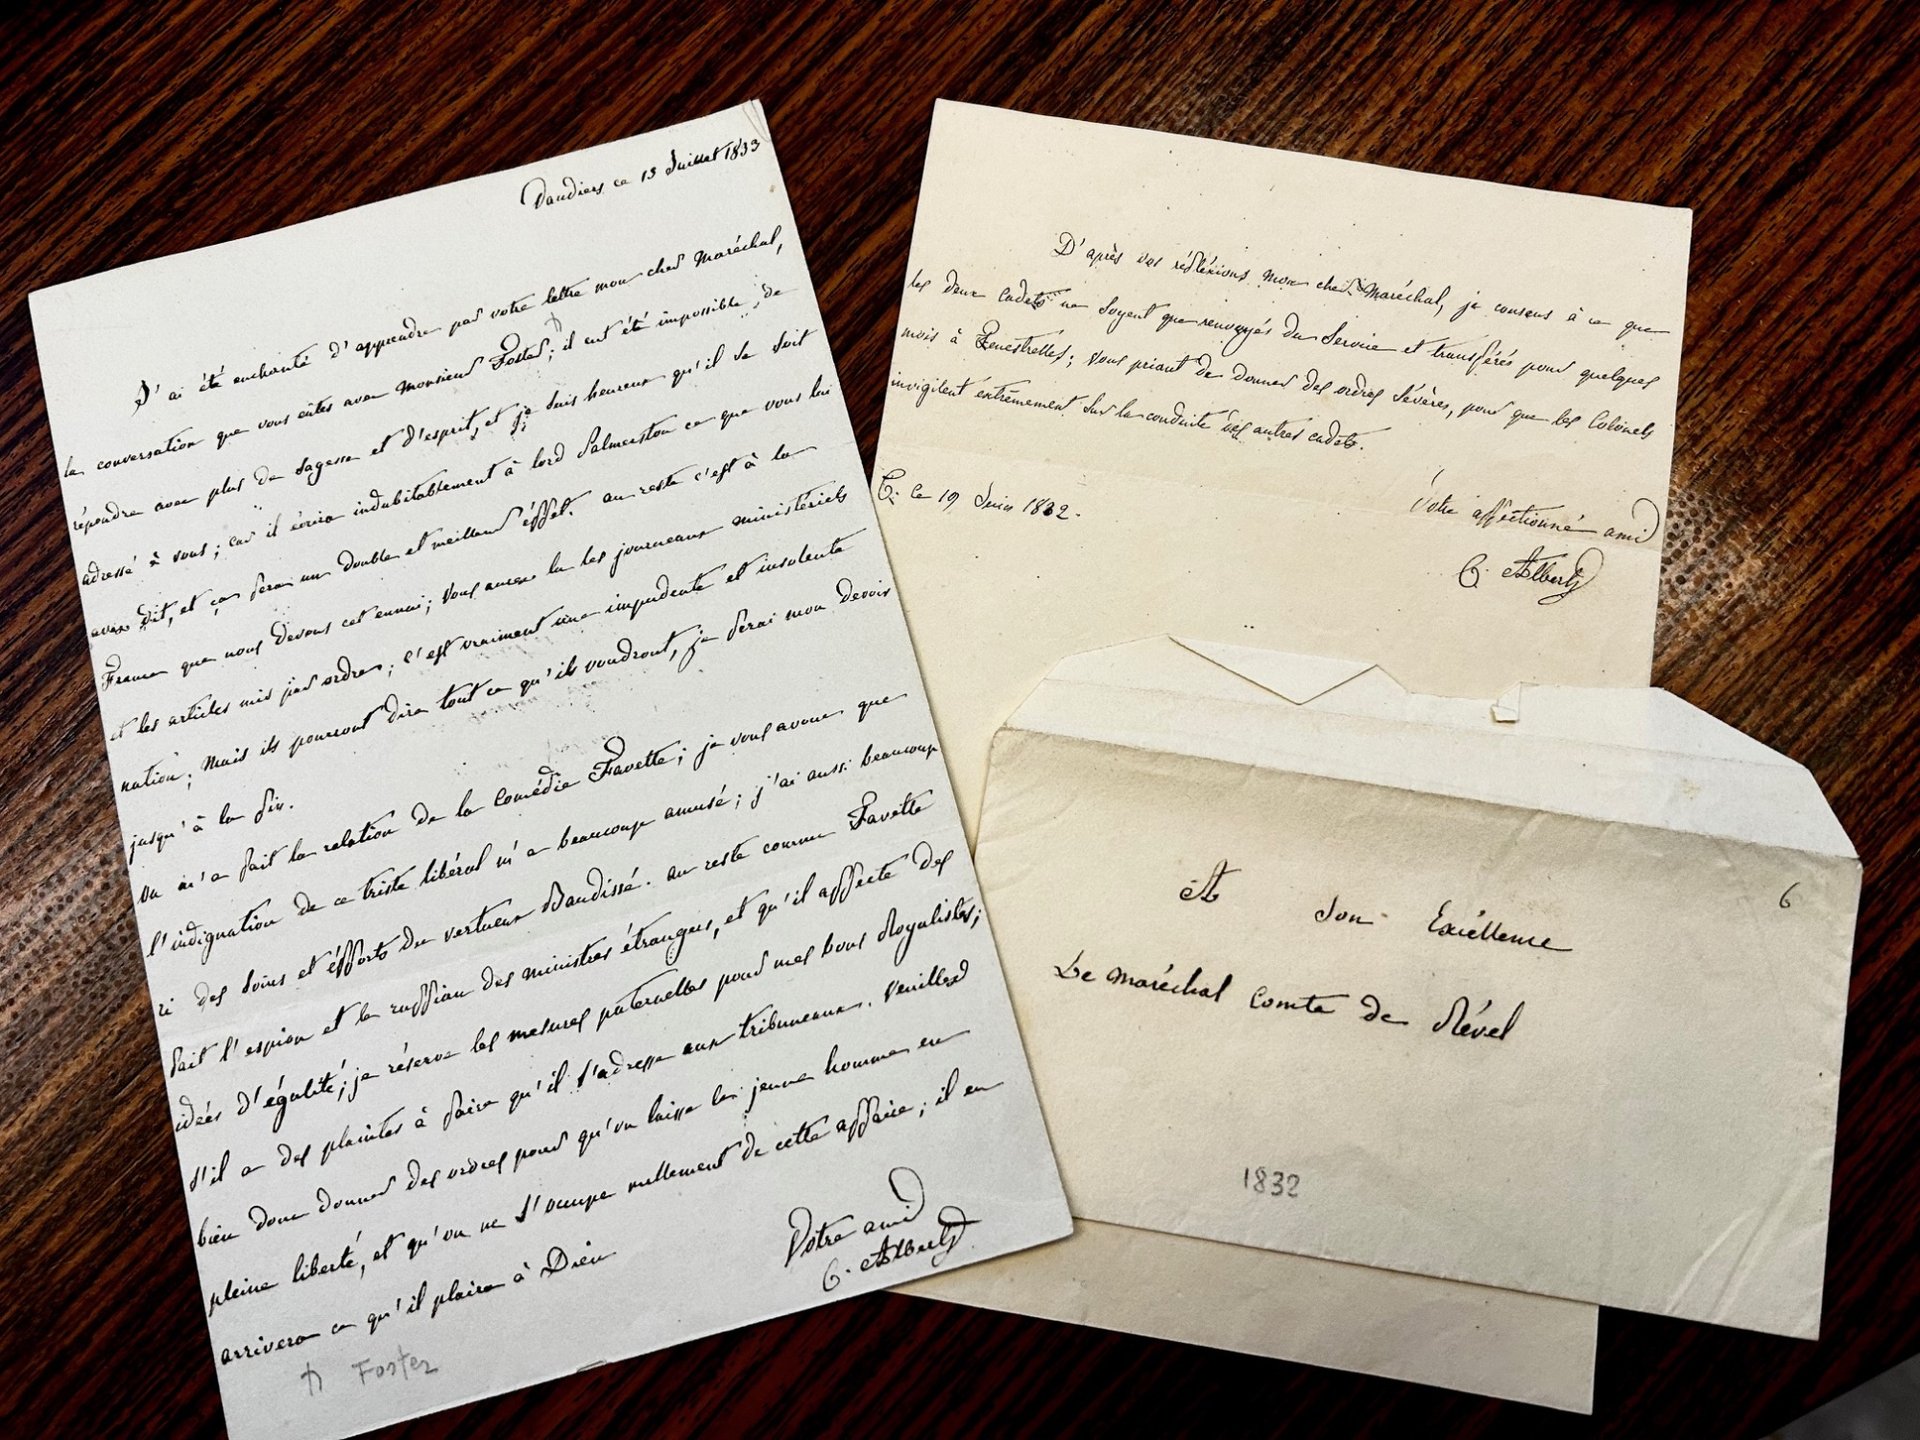 ce 13 Juillet 1833
J'ai été enchanté d'apprendre par votre lettre mon cher Maréchal,
la conversation que vous eûtes avec Monsieur Foster; il eut été impossible, de
répondre avec plus de sagesse et d'esprit, et je suis heureux qu'il se soit
adressé à vous; car il écrira indubitablement à lord Palmerston ce que vous lui
avez dit, et ça fera un double et meilleur éffet. au reste c'est à la
France que nous devons cet ennui; vous aurez lu les journeaux ministériels
et les articles mis par ordre; c'est vraiment une impudente et insolente
nation; mais ils pourront dire tout ce qu'ils voudront, je ferai mon devoir
jusqu'à la fin.
On m'a fait la relation de la Comédie Favette; je vous avoue que
l'indignation de ce triste libéral m'a beaucoup amusé; j'ai aussi beaucoup
ri des soins et éfforts du vertueux Baudissé. au reste comme Favette
fait l'espion et le ruffian des ministres étrangers, et qu'il affecte des
idées d'égalité; je réserve les mesures paternelles pour mes bons Royalistes;
s'il a des plaintes à faire qu'il s'adresse aux tribuneaux. Veuillez
bien donc donner des ordres pour qu'on laisse le jeune homme en
pleine liberté, et qu'on ne s'occupe nullement de cette affaire; il en
arrivera ce qu'il plaira à Dieu
Votre ami
C. Albert
Foster
D'après vos réfléxions mon cher Maréchal, je consens à ce que
les deux cadets ne soyent que renvoyés du Service et transférés pour quelques
mois à Fenestrelles; vous priant de donner des ordres sévères, pour que les Colonels
invigilent extrêmement sur la conduite des autres cadets.
T. le 19 Juin 1832.
Votre affectionné ami
C. Albert
6
A Son Excéllence
Le Maréchal Comte de Révél
1832